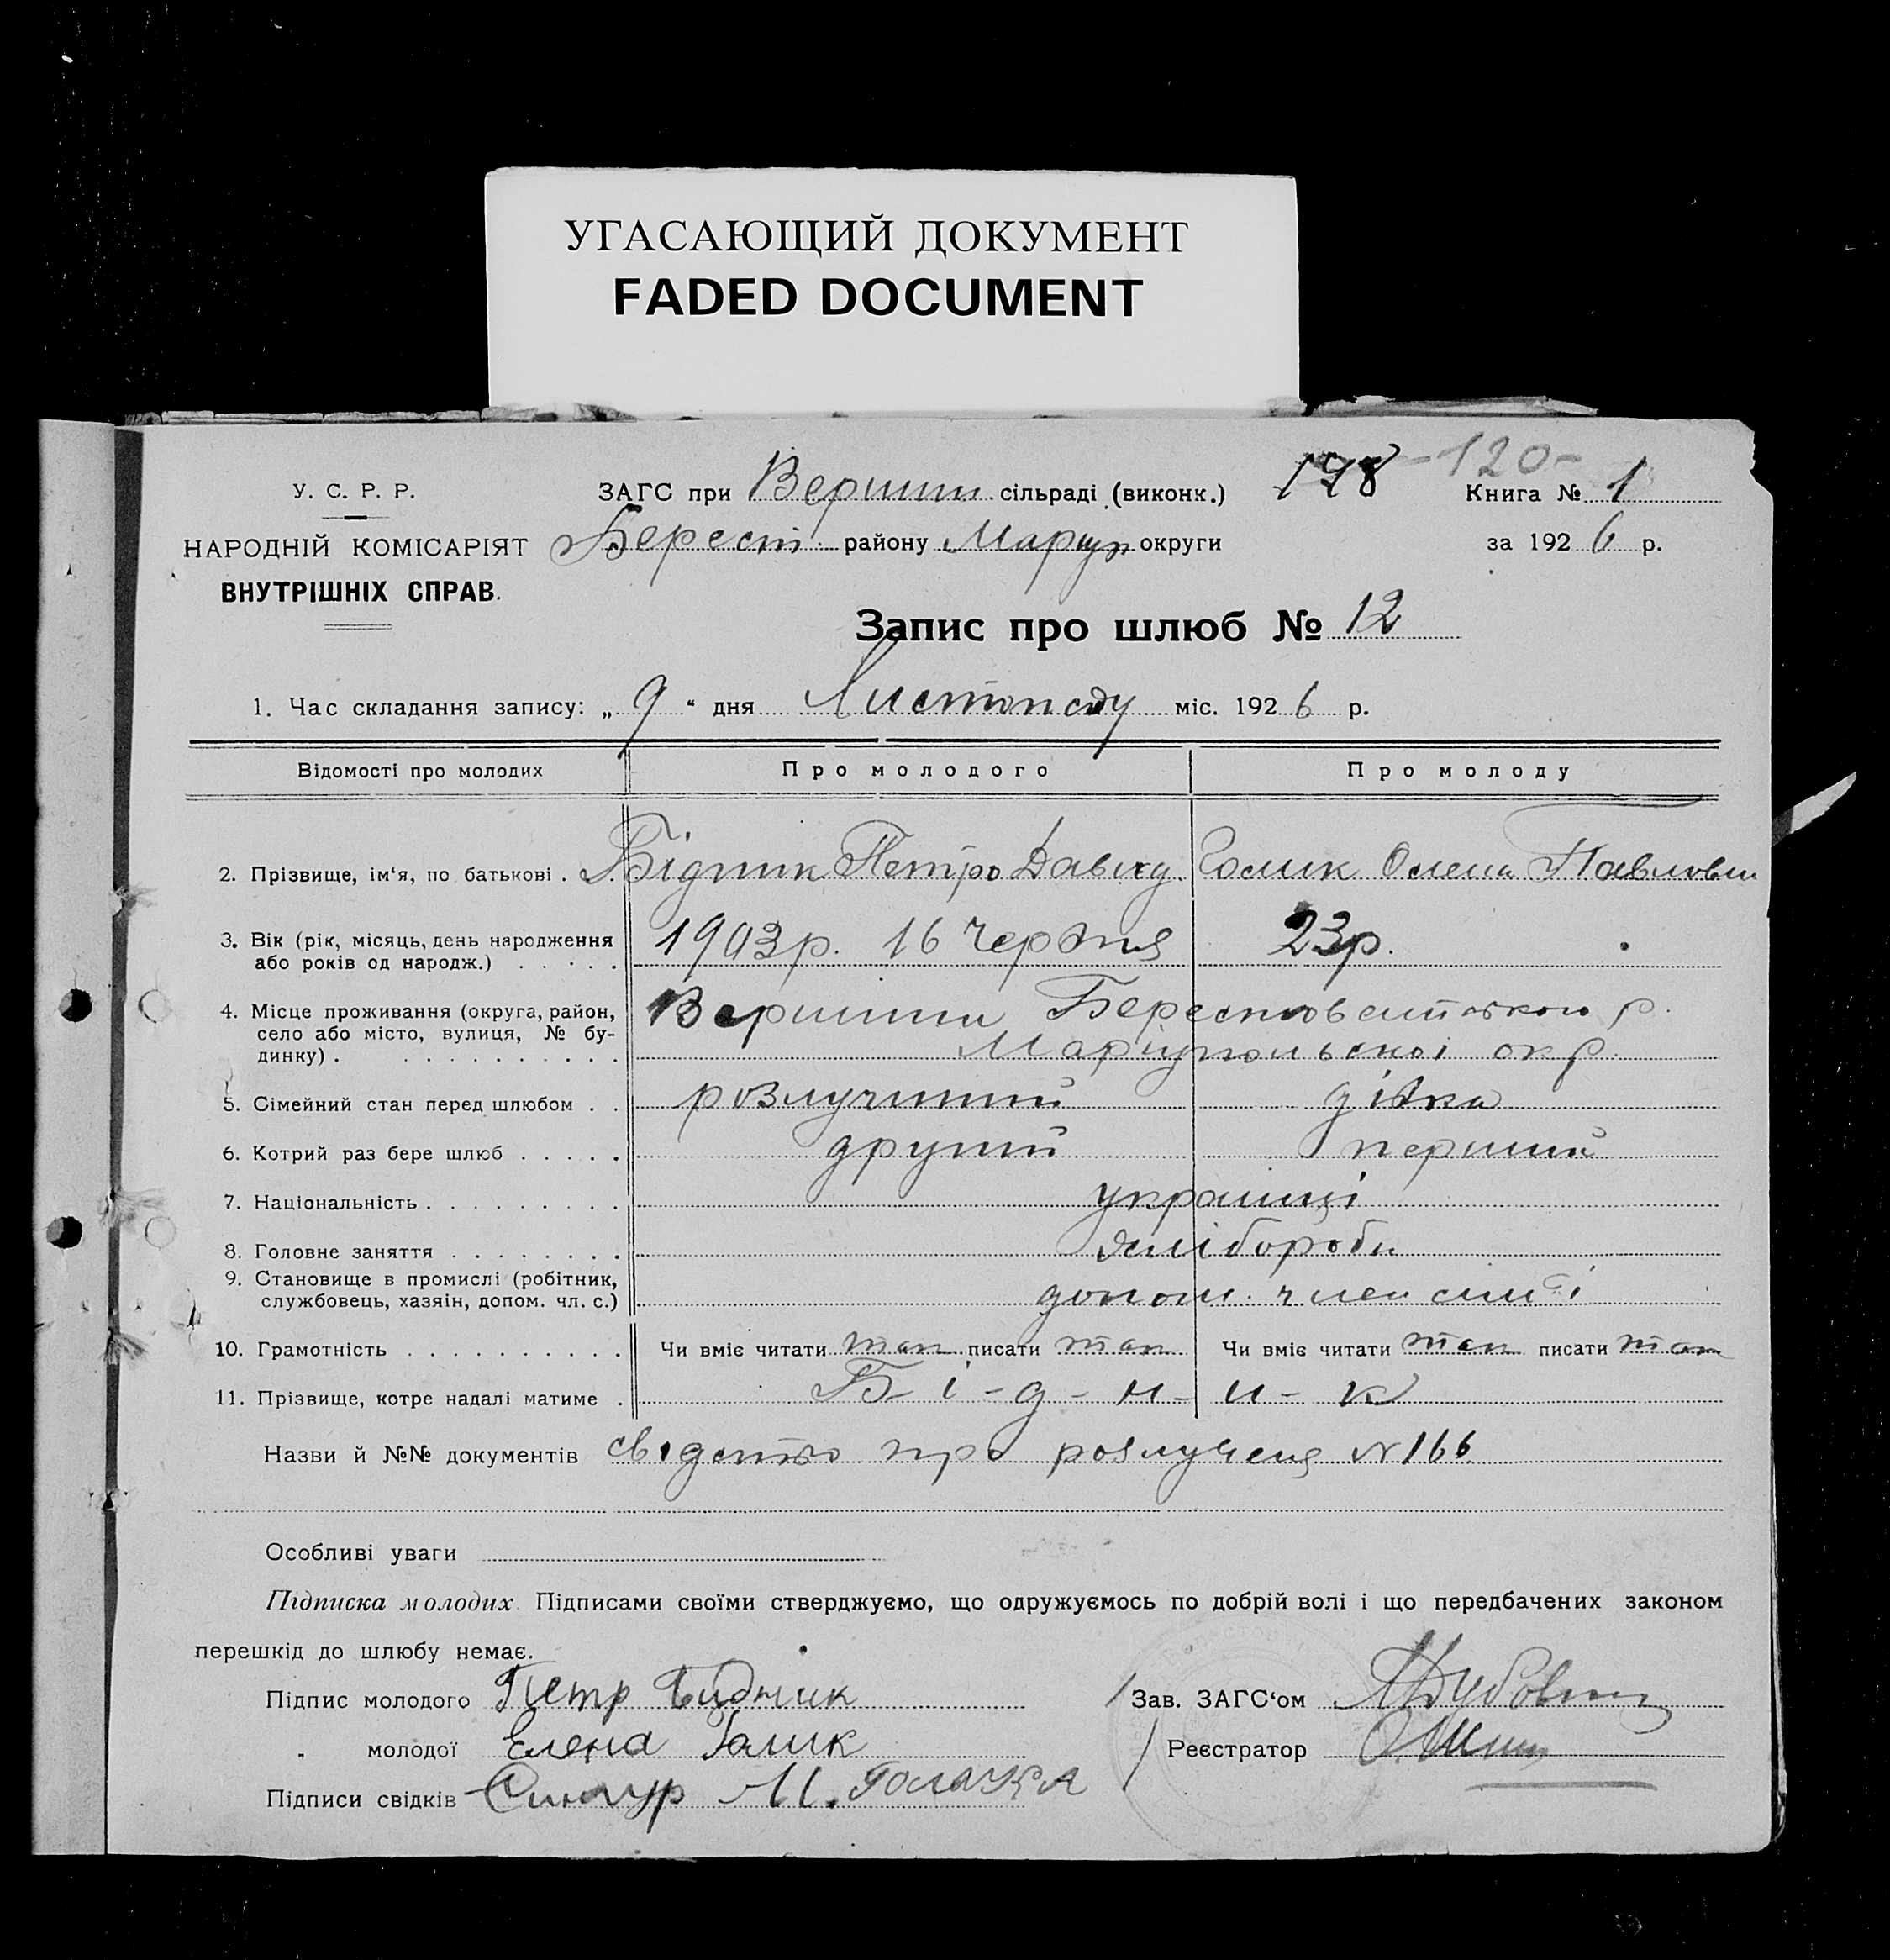 УГАСАЮЩИЙ ДОКУМЕНТ
FADED DOCUMENT
-120-
У. С. Р. Р.
ЗАГС при Вершин. сільраді (виконк.) 198 Книга № 1
НАРОДНІЙ КОМІСАРІЯТ Берест. району Маріуп округи за 1926 р.
ВНУТРІШНІХ СПРАВ.
Запис про шлюб № 12
1. Час складання запису: „ 9 “ дня Листопаду міс. 1926 р.
Відомості про молодих Про молодого Про молоду
2. Прізвище, ім'я, по батькові . . Бідник Петро Давид. Голик Олена Павловна
3. Вік (рік, місяць, день народження 1903р. 16 Червня 23р.
або років од народж.) . . . . .
4. Місце проживання (округа, район, Вершини Берестов р.
село або місто, вулиця, № бу-
динку) . . . . . . . . . . . Маріупольскоі окр.
5. Сімейний стан перед шлюбом . . розлучиний дівка
6. Котрий раз бере шлюб . . . . . другий перший
7. Національність . . . . . . . . . українці
8. Головне заняття . . . . . . . . хлібороби
9. Становище в промислі (робітник,
службовець, хазяін, допом. чл. с.) допом. член сім'ї
10. Грамотність . . . . . . . . . . Чи вміє читати так писати так Чи вміє читати так писати так
11. Прізвище, котре надалі матиме . Б - і - д - н - и - к
Назви й №№ документів свідство про розлученя №166
Особливі уваги
Підписка молодих. Підписами своїми стверджуємо, що одружуємось по добрій волі і що передбачених законом
перешкід до шлюбу немає.
Підпис молодого Петр Бидник Зав. ЗАГС'ом
„ молодої Елена Голик Реєстратор
Підписи свідків М.